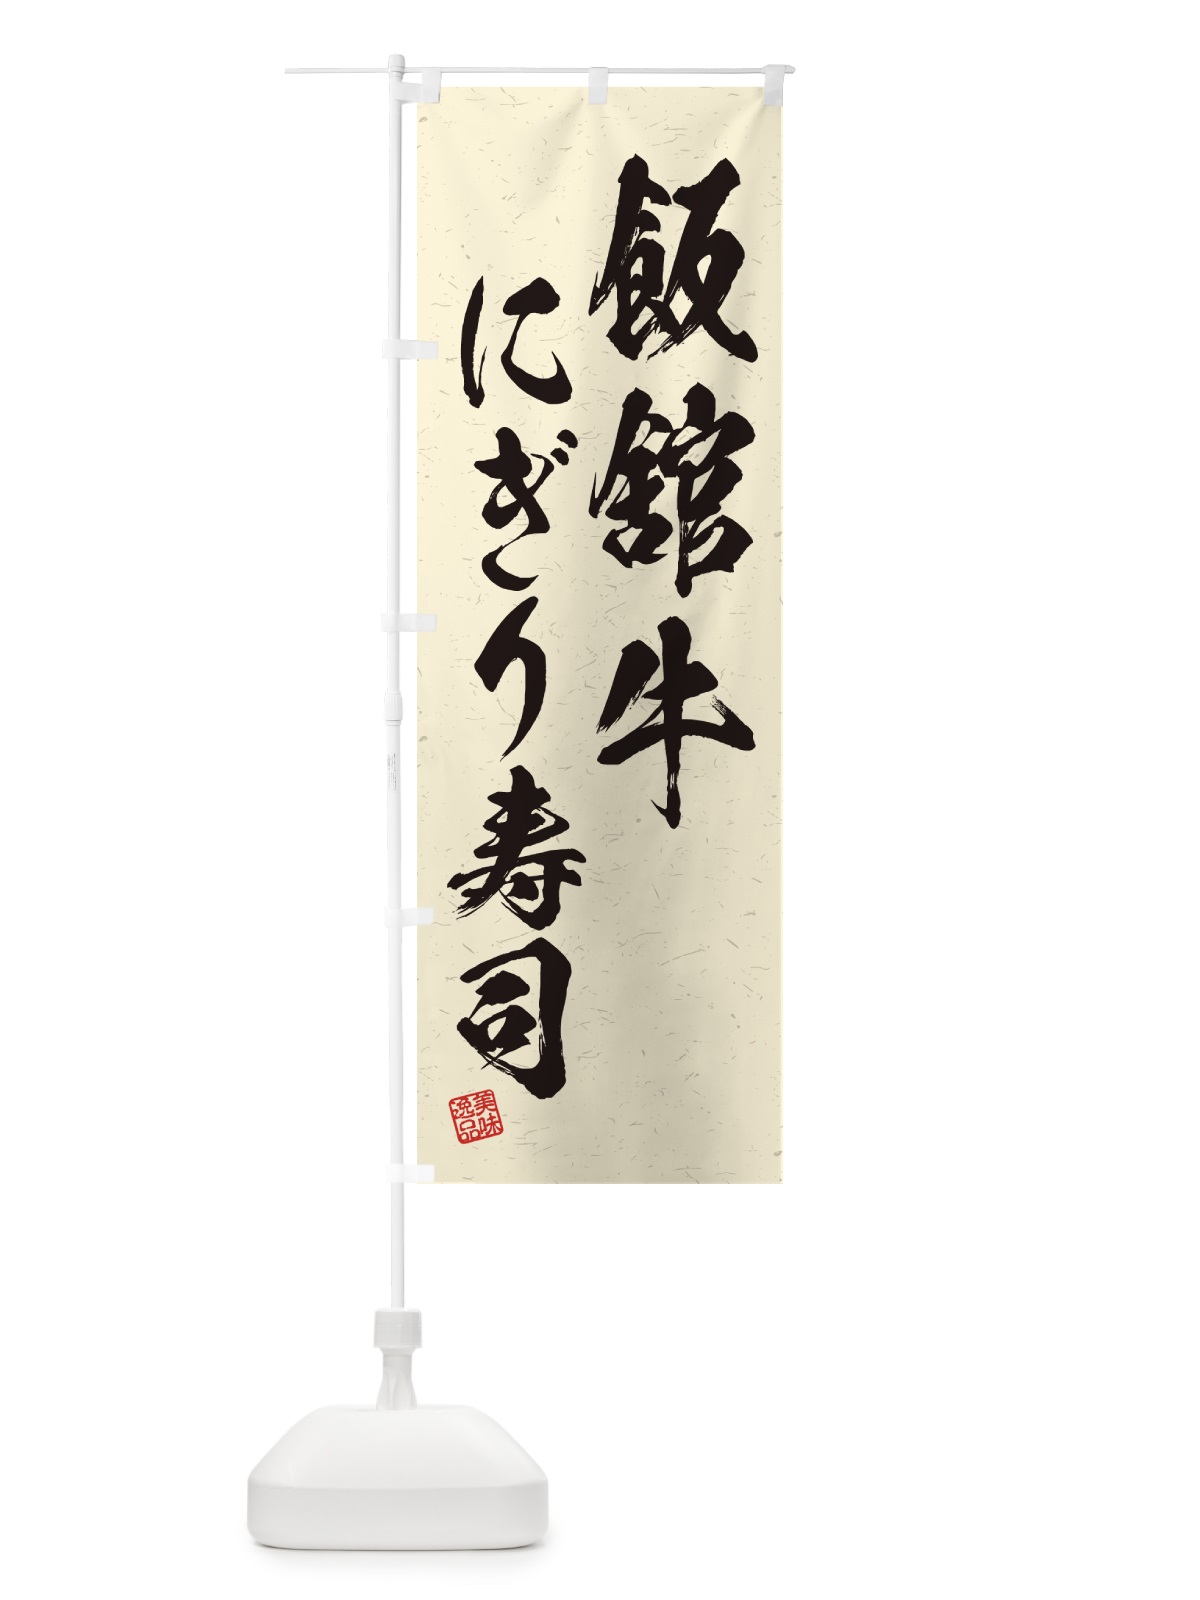 飯舘牛
にぎり寿司
美味
逸品